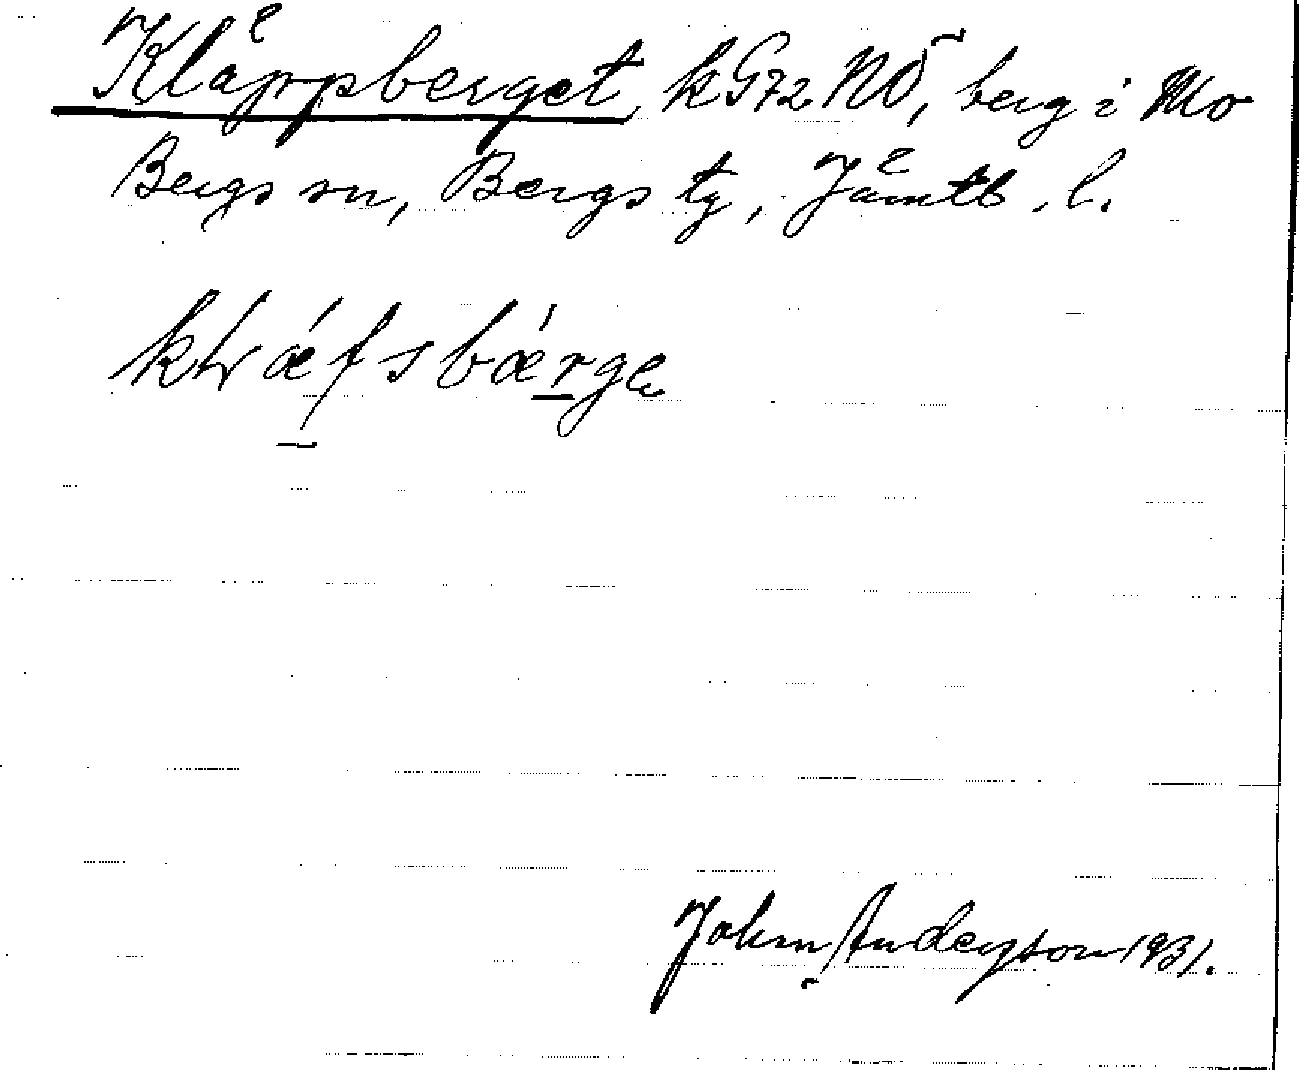 Kläppberget, kG72 NÖ, berg i Mo
Bergs sn, Bergs tg, Jämtl. l.
John Andersson 1931.